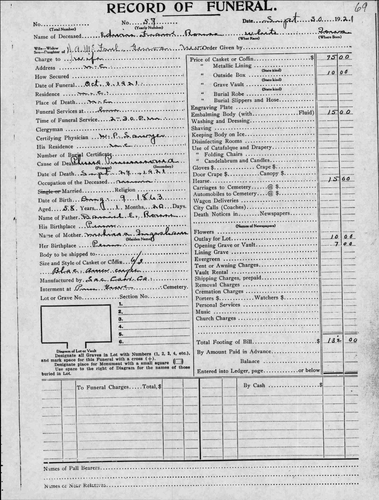 69
RECORD OF FUNERAL.
No. 57 Date Sept 30 1921
(Yearly Number)
Name of Deceased Edwin Frank Rowe White
Charge to Wife
Address m.c.
How Secured
Date of Funeral Oct 2, 1921.
Residence m.c.
Place of Death m.c.
Funeral Services at
Time of Funeral Service 2-30 P.m
Clergyman
Certifying Physician W.P. Sawyer
His Residence m.c
Number of Burial Certificate
Cause of Death
Date of Death Sept 29, 1921
Occupation of the Deceased
Single or Married Religion
Date of Birth Aug 9 1863
Aged 58 Years, 1 Months, 20 Days
Name of Father Daniel E. Rowe
His Birthplace Penn
Name of Mother Ingraham
(Maiden Name)
Her Birthplace Penn
Body to be shipped to
Size and Style of Casket or Coffin 6/3
Manufactured by Sac Cas. Co.
Interment at Cemetery.
Lot or Grave No. Section No.
1
2
3
4
5
6
Diagram of Lot or Vault
Designate all Graves in Lot with Numbers (1, 2, 3, 4, etc.),
and mark space for this Funeral with a cross (+).
Designate place for Monument with a small square
Use space to the right of Diagram for the names of those
buried in Lot.
Order Given by
Price of Casket or Coffin 75 00
" Metallic Lining
" Outside Box 10 00
" Grave Vault
" Burial Robe
" Burial Slippers and Hose
Engraving Plate
Embalming Body (with Fluid) 15 00
Washing and Dressing
Shaving
Keeping Body on Ice
Disinfecting Rooms
Use of Catafalque and Drapery
" Folding Chairs
" Candelabrum and Candles
Gloves
Door Crape
Hearse 15 00
Carriages to Cemetery @ $
Automobiles to Cemetery @ $
Wagon Deliveries
City Calls (Coaches)
Death Notices in Newspapers
(Names of Newspapers)
Flowers
Outlay for Lot 10 00
Opening Grave or Vault 7 00
Lining Grave
Evergreen
Tent or Awning Charges
Vault Rental
Shipping Charges, prepaid
Removal Charges
Cremation Charges
Porters $ Watchers $
Personal Services
Music
Church Charges
Total Footing of Bill $ 132 00
By Amount Paid in Advance
Balance
Entered into Ledger, page or below.
To Funeral Charges Total, $
By Cash $
Names of Pall Bearers
Names of Near Relatives